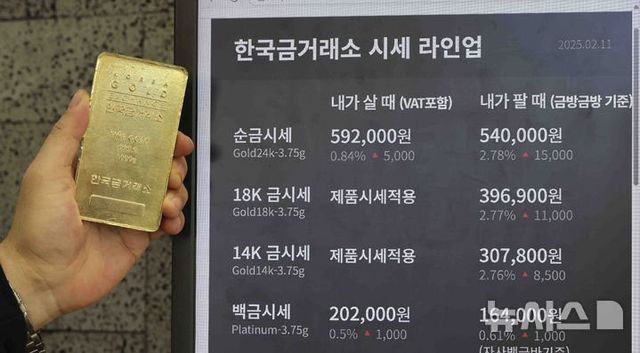 KOREA
GOLD
한국금거래소
FINE GOLD
999.9
1000g
한국금거래소
한국금거래소 시세 라인업
2025.02.11
내가 살 때 (VAT포함) 내가 팔 때 (금방금방 기준)
순금시세 592,000원 540,000원
Gold24k-3.75g 0.84% ▲ 5,000 2.78% ▲ 15,000
18K 금시세 제품시세적용 396,900원
Gold18k-3.75g 2.77% ▲ 11,000
14K 금시세 제품시세적용 307,800원
Gold14k-3.75g 2.76% ▲ 8,500
백금시세 202,000원 164,000원
Platinum-3.75g 0.5% ▲ 1,000 0.61% ▲ 1,000
(자사백금바기준)
뉴시스